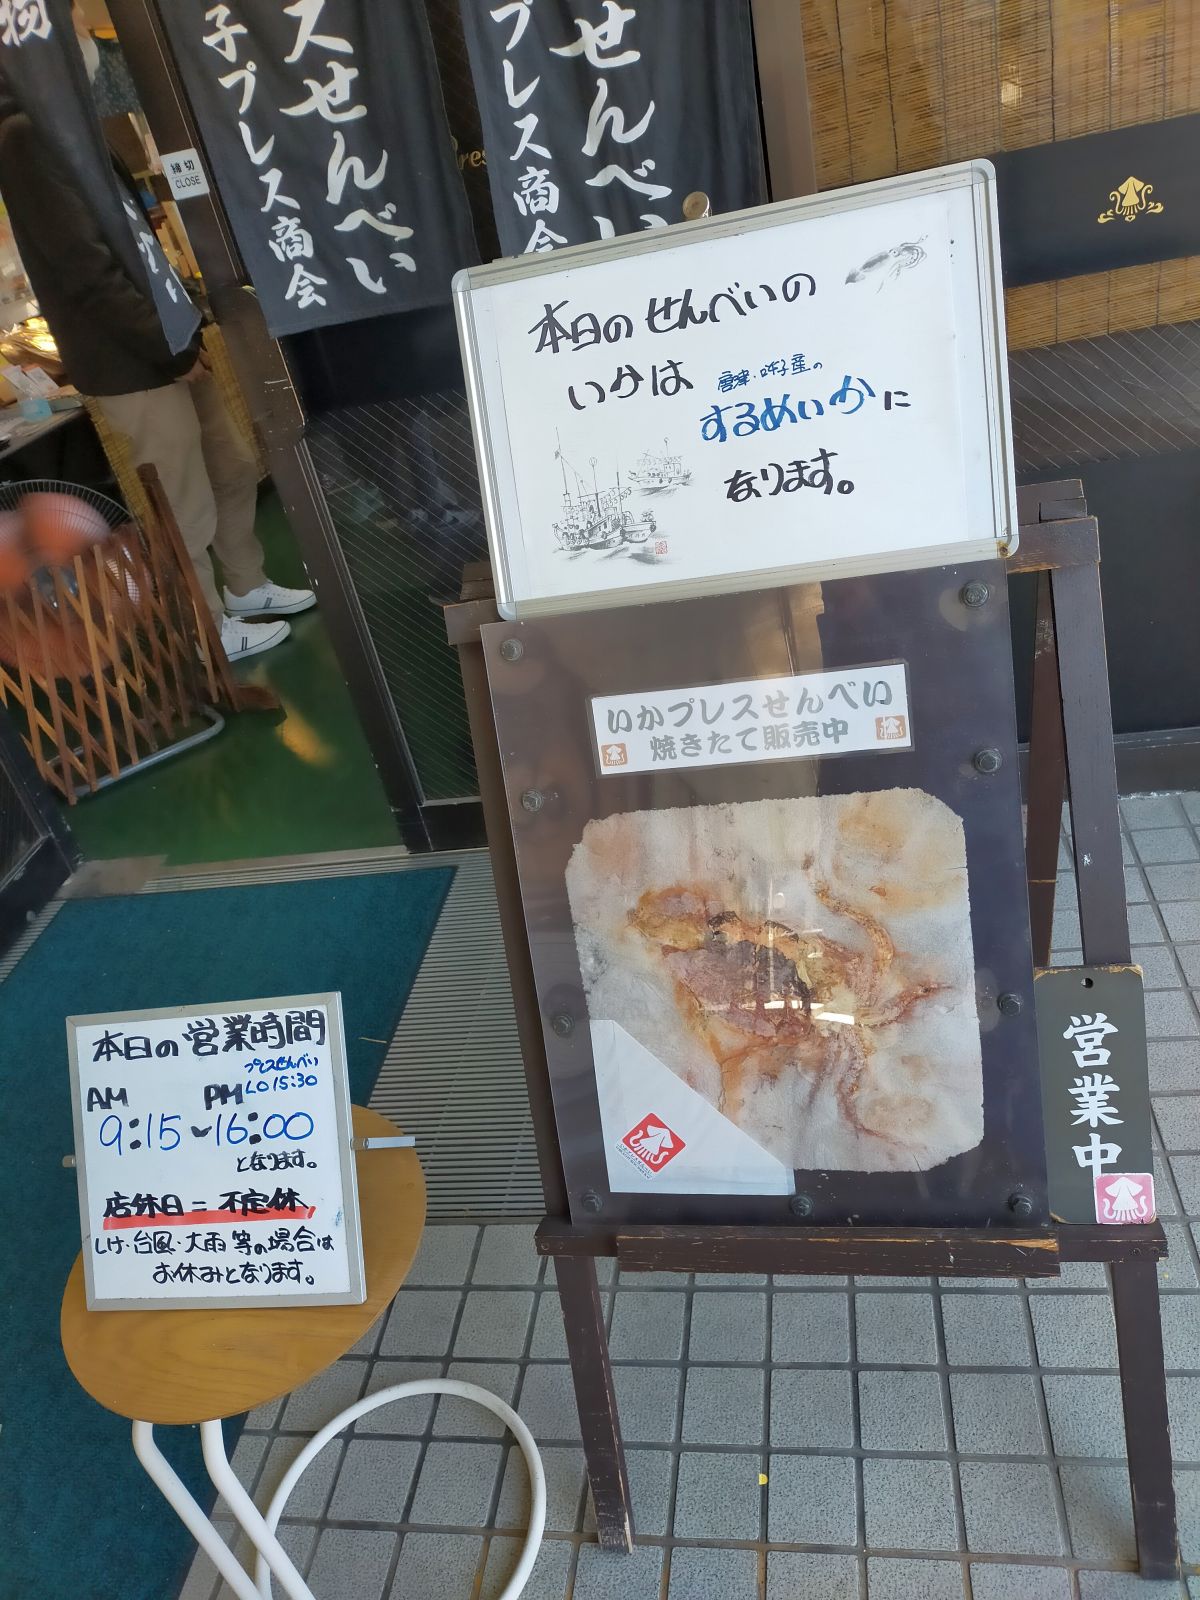 物
スせんべい
子プレス商会
せんべい
プレス商会
締切
CLOSE
本日のせんべいの
いかは 唐津・呼子産の
するめいかに
なります。
いかプレスせんべい
焼きたて販売中
営業中
本日の営業時間
プレスせんべい
AM PM LO 15:30
9:15~16:00
となります。
店休日=不定休
しけ・台風・大雨等の場合は
お休みとなります。